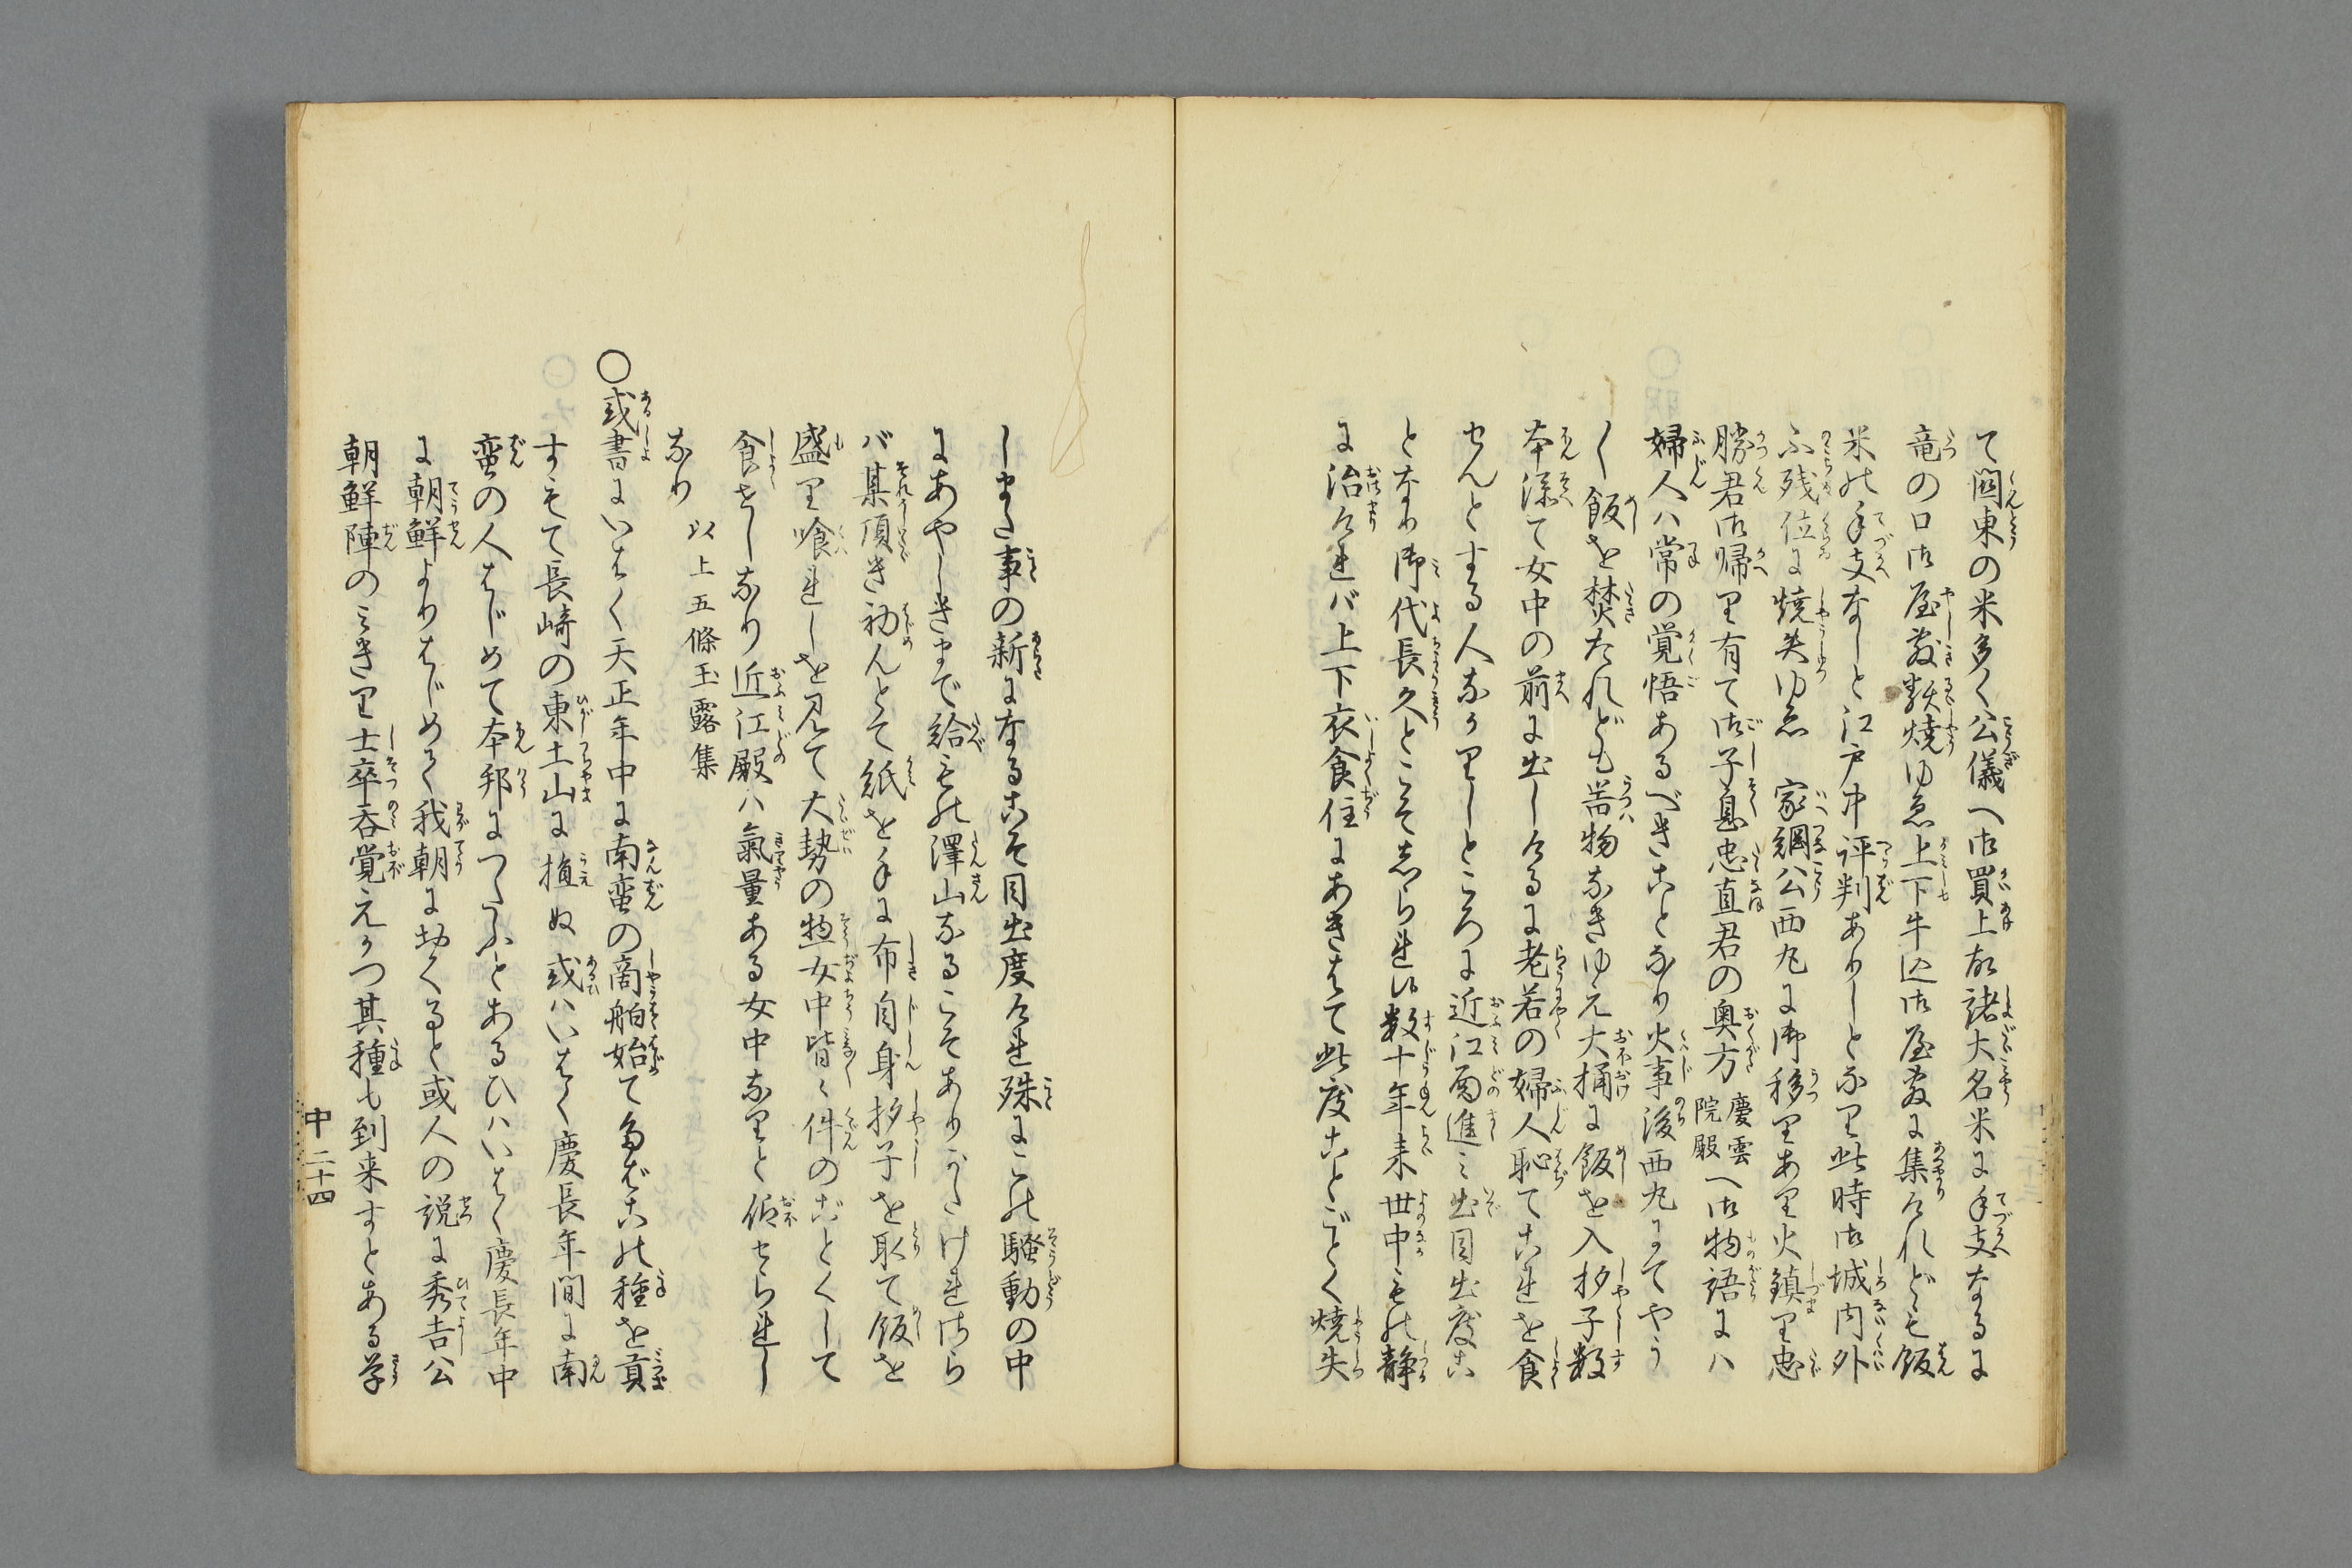 て関東の米多く公儀へ御買上故諸大名米に手支なるに
竜の口御屋敷類焼ゆゑ上下牛込御屋敷に集けれども飯
米の手支なしと江戸中評判ありしとなり此時御城内外
不残位に焼失ゆゑ 家綱公西丸に御移りあり火鎮り忠
勝君御帰り有て御子息忠直君の奥方慶雲院殿へ御物語にハ
婦人ハ常の覚悟あるべきことなり火事後西丸にてやう
く飯を焚たれども器物なきゆえ大桶に飯を入杓子数
本添て女中の前に出しけるに老若の婦人恥てこれを食
せんとする人なかりしところに近江局進ミ出目出度こ
となり御代長久とこそ知られ候数十年来世中もの静
に治けれバ上下衣食住にあきはて此度ことごとく焼失
しまた事の新になるこそ目出度けれ殊にこの騒動の中
にあやしきまで給もの澤山なるこそありがたけれ御ら
バ某頂き初んとて紙を手に布自身杓子を取て飯を
盛り喰れしを見て大勢の惣女中皆〻件のごとくして
食をしなり近江殿ハ氣量ある女中なりと仰せられし
なり 以上五條玉露集
○或書にいはく天正年中に南蛮の商舶始てたばこの種を貢
すもて長崎の東土山に植ぬ或ハいはく慶長年間に南
蛮の人はじめて本邦につたふとあるひハいはく慶長年中
に朝鮮よりはじめて我朝に功くると或人の説に秀吉公
朝鮮陣のミきり士卒呑覚えかつ其種も到来すとある学
中 二十四